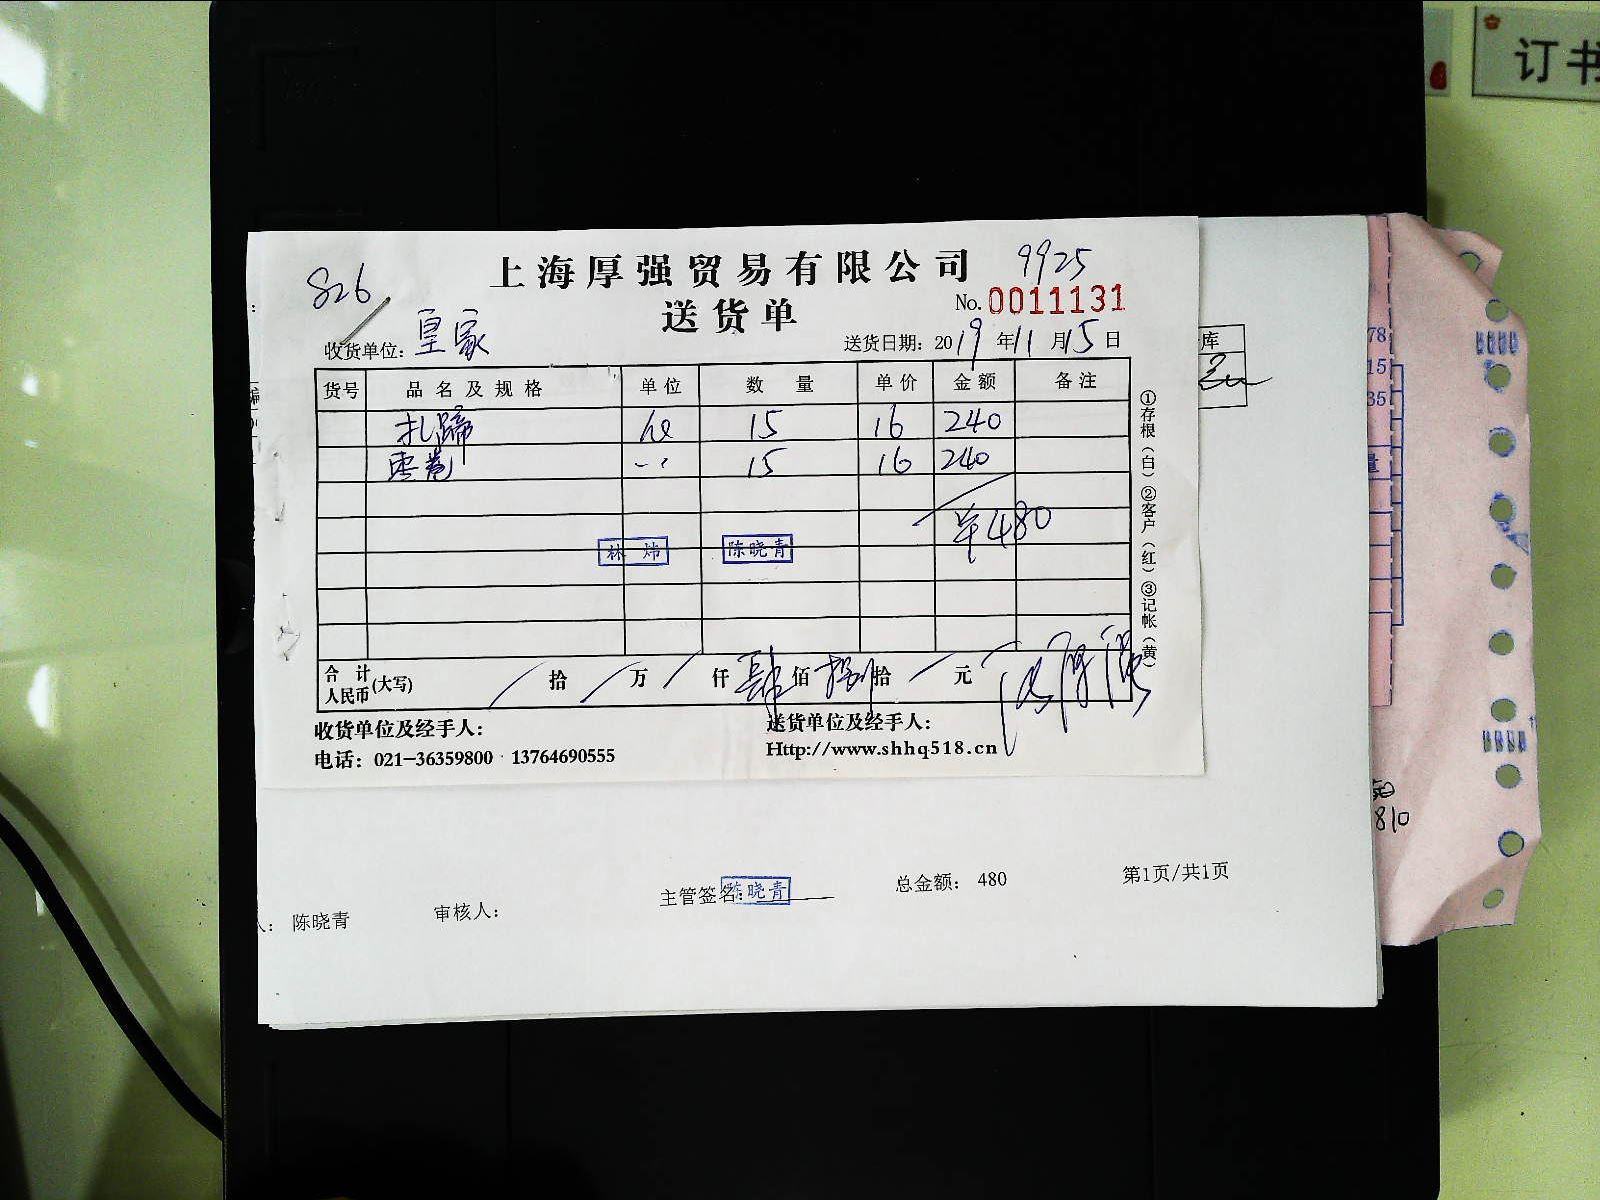 订书
826
上海厚强贸易有限公司
9925
送货单
No. 0011131
收货单位: 皇家
送货日期: 2019年11月15日
货号 品名及规格 单位 数量 单价 金额 备注
扎蹄 15 16 240
枣卷 15 16 240
¥480
林炜 陈晓青
合计人民币(大写) 拾 万 仟 肆佰 捌拾 元
①存根(白)②客户(红)③记帐(黄)
收货单位及经手人: 送货单位及经手人:
电话: 021-36359800 13764690555 Http://www.shhq518.cn
库
78
15
35
量
810
主管签名: 陈晓青 总金额: 480 第1页/共1页
人: 陈晓青 审核人: